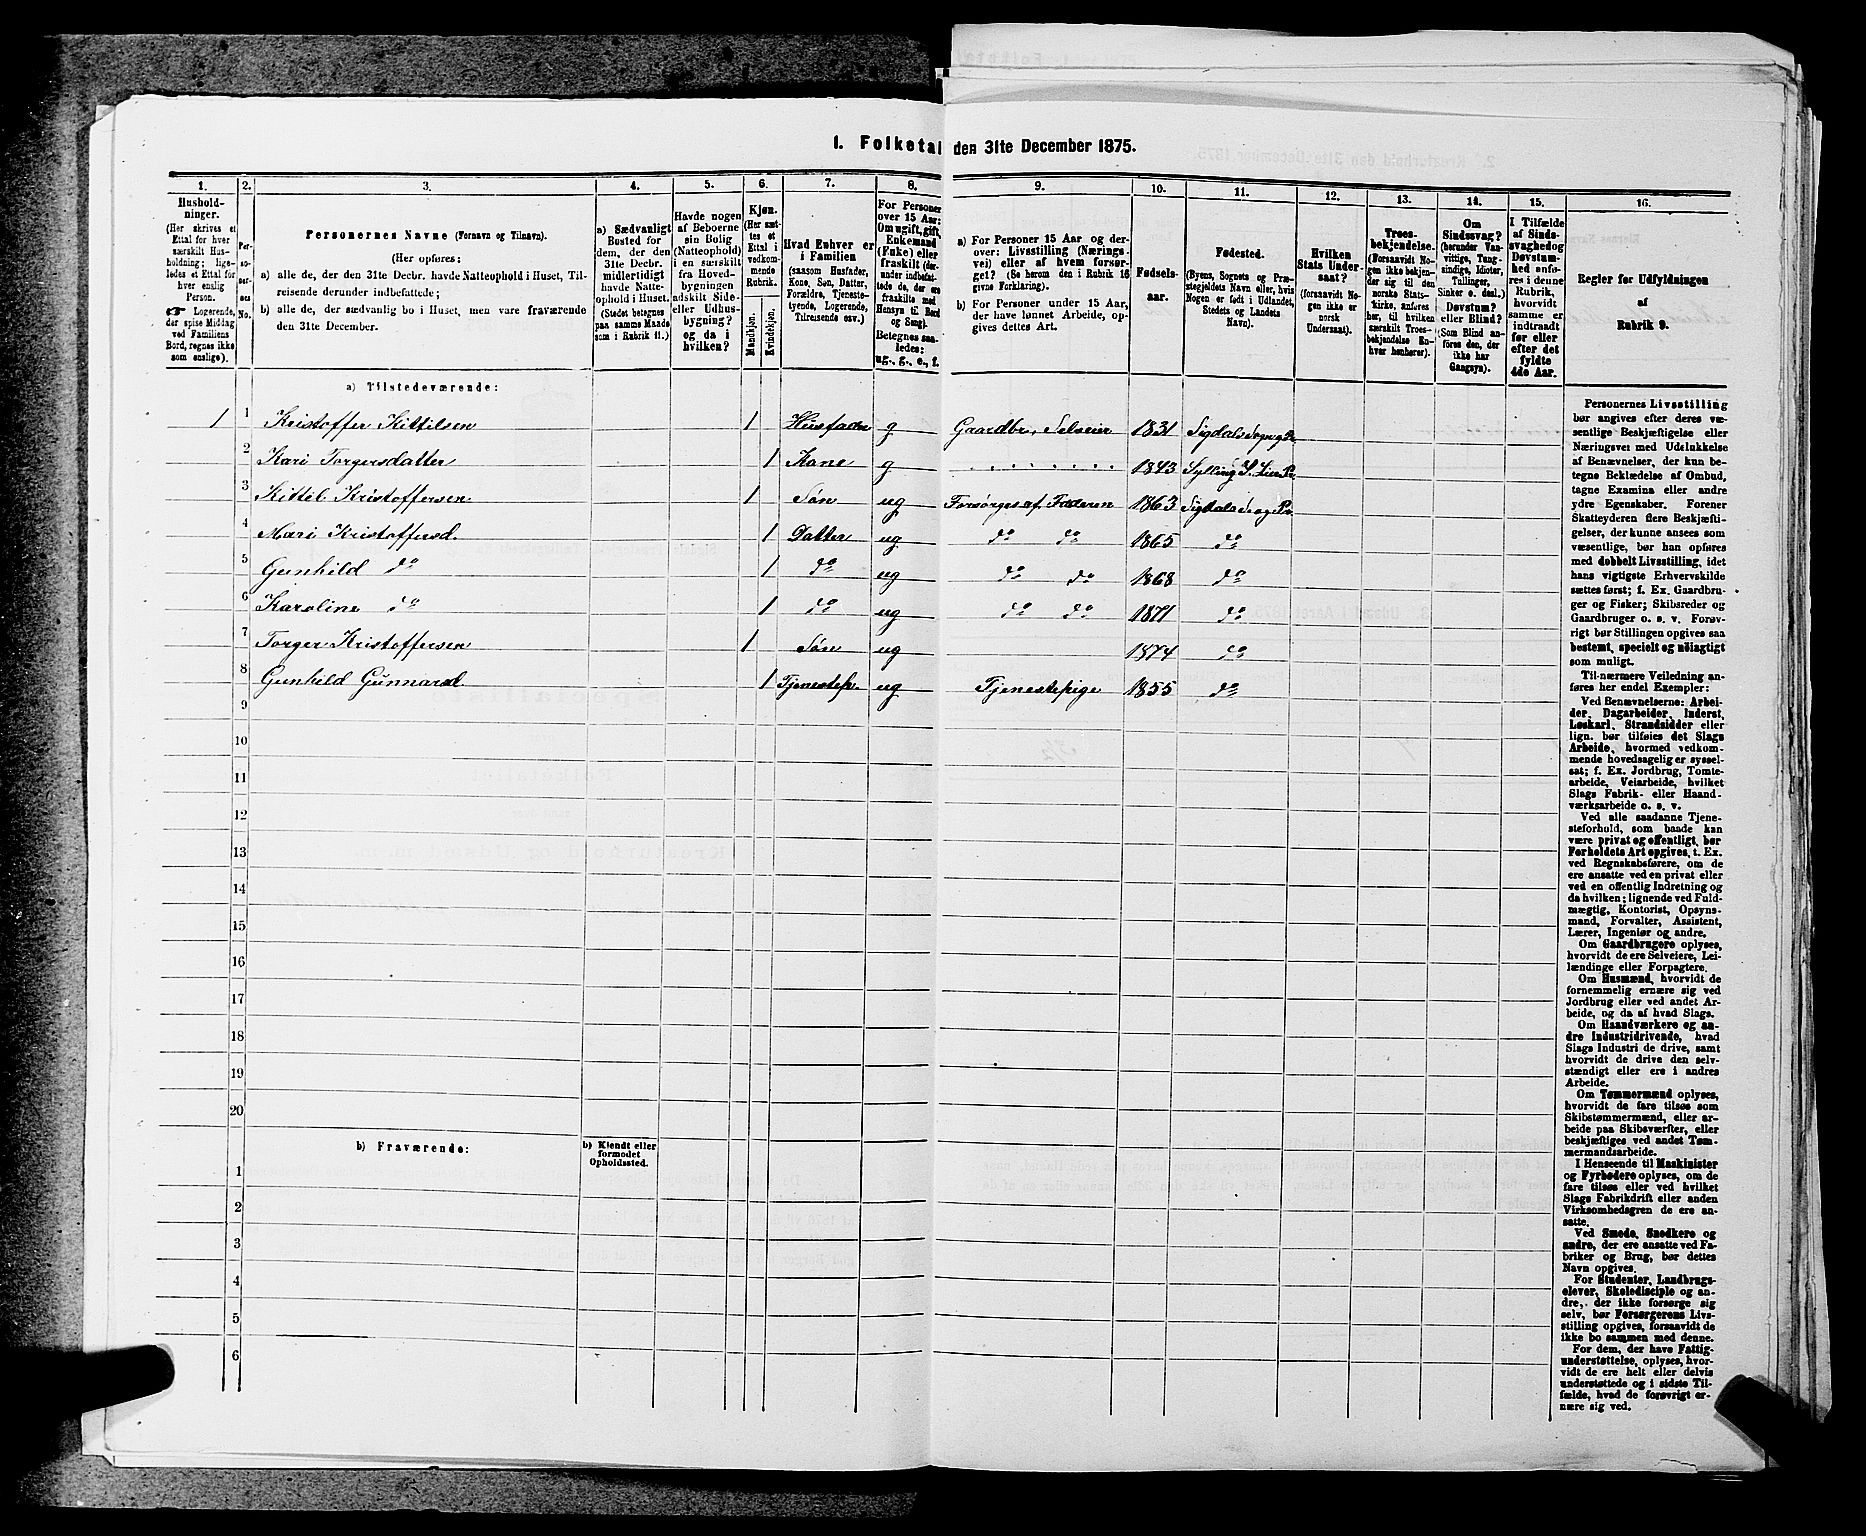 1. Folketal den 31te December 1875.
1. 2. 3. 4. 5. 6. 7. 8. 9. 10. 11. 12. 13. 14. 15. 16.
Hushold-
ninger.
(Her skrives et
Ettal for hver
særskilt Hus-
holdning; lige-
ledes et Ettal for
hver enslig
Person.
☞ Logerende,
der spise Middag
ved Familiens
Bord, regnes ikke
som enslige).
Per-
so-
nernes
No.
Personernes Navne (Fornavn og Tilnavn).
(Her opføres:
a) alle de, der den 31te Decbr. havde Natteophold i Huset, Til-
reisende derunder indbefattede;
b) alle de, der sædvanlig bo i Huset, men vare fraværende
den 31te December.
a) Sædvanligt
Bosted for
dem, der den
31te Decbr.
midlertidigt
havde Natte-
ophold i Huset.
(Stedet betegnes
paa samme Maade
som i Rubrik 11.)
Havde nogen
af Beboerne
sin Bolig
(Natteophold)
i en særskilt
fra Hoved-
bygningen
adskilt Side-
eller Udhus-
bygning?
og da i
hvilken?
Kjøn.
(Her sæt-
tes et
Ettal i
vedkom-
mende
Rubrik.
Mandkjøn.
Kvindekjøn.
Hvad Enhver er
i Familien
(saasom Husfader,
Kone, Søn, Datter,
Forældre, Tjeneste-
tyende, Logerende,
Tilreisende osv.)
For Personer
over 15 Aar:
Om ugift, gift,
Enkemand
(Enke) eller
fraskilt (der-
under indbefat-
tede de, der ere
fraskilte med
Hensyn til Bord
og Seng).
Betegnes saa-
ledes:
ug., g., e., f.
a) For Personer 15 Aar og der-
over: Livsstilling (Nærings-
vei) eller af hvem forsør-
get? (Se herom den i Rubrik 16
givne Forklaring).
b) For Personer under 15 Aar,
der have lønnet Arbeide, op-
gives dettes Art.
Fødsels-
aar.
Fødested.
(Byens, Sognets og Præ-
stegjeldets Navn eller, hvis
Nogen er født i Udlandet,
Stedets og Landets
Navn).
Hvilken
Stats Under-
saat?
(forsaavidt No-
gen ikke er
norsk
Undersaat).
Troes-
bekjendelse.
(Forsaavidt No-
gen ikke bekjen-
der sig til den
norske Stats-
kirke, anføres
her, til hvilken
særskilt Troes-
bekjendelse En-
hver henhører).
Om
Sindssvag?
(herunder Van-
vittige, Tung-
sindige, Idioter,
Tullinger,
Sinker o. desl.)
Døvstum?
eller Blind?
(Som Blind an-
føres den, der
ikke har
Gangsyn).
I Tilfælde
af Sinds-
svaghed og
Døvstum-
hed anfø-
res i denne
Rubrik,
hvorvidt
samme er
indtraadt
før eller
efter det
fyldte
4de Aar.
Regler for Udfyldningen
af
Rubrik 9.
a) Tilstedeværende:
1 1 Kristoffer Kittilsen 1 Husfader g Gaardbr., Selveier 1831 Sigdals Sogn og Pr
2 Kari Torgersdatter 1 Kone g 1843 Sylling S. Lier Pr
3 Kittel Kristoffersen 1 Søn ug Forsørges af Faderen 1863 Sigdals S og Pr
4 Mari Kristoffersd. 1 Datter ug do do 1865 do
5 Gunhild do 1 do ug do do 1868 do
6 Karoline do 1 do ug do do 1871 do
7 Torger Kristoffersen 1 Søn ug 1874 do
8 Gunhild Gunnarsd. 1 Tjenestep. ug Tjenestepige 1855 do
9
10
11
12
13
14
15
16
17
18
19
20
b) Fraværende:
b) Kjendt eller
formodet
Opholdssted.
1
2
3
4
5
6
Personernes Livsstilling
bør angives efter deres væ-
sentlige Beskjæftigelse eller
Næringsvei med Udelukkelse
af Benævnelser, der kun be-
tegne Beklædelse af Ombud,
tagne Examina eller andre
ydre Egenskaber. Forener
Skatteyderen flere Beskjæfti-
gelser, der kunne ansees som
væsentlige, bør han opføres
med dobbelt Livsstilling, idet
hans vigtigste Erhvervskilde
sættes først; f. Ex. Gaardbru-
ger og Fisker; Skibsreder og
Gaardbruger o. s. v. Forøv-
rigt bør Stillingen opgives saa
bestemt, specielt og nøiagtigt
som muligt.
Til nærmere Veiledning an-
føres her endel Exempler:
Ved Benævnelserne: Arbei-
der, Dagarbeider, Inderst,
Løskarl, Strandsidder eller
lign. bør tilføies det Slags
Arbeide, hvormed vedkom-
mende hovedsagelig er syssel-
sat; f. Ex. Jordbrug, Tomte-
arbeide, Veiarbeide, hvilket
Slags Fabrik- eller Haand-
værksarbeide o. s. v.
Ved alle saadanne Tjene-
steforhold, som baade kan
være privat og offentligt, bør
Forholdets Art opgives, t. Ex.
ved Regnskabsførere, om de
ere ansatte ved en privat eller
ved en offentlig Indretning og
da hvilken; lignende ved Fuld-
mægtig, Kontorist, Opsyns-
mand, Forvalter, Assistent,
Lærer, Ingeniør og andre.
Om Gaardbrugere oplyses,
hvorvidt de ere Selveiere, Lei-
lændinge eller Forpagtere.
Om Husmænd, hvorvidt de
fornemmelig ernære sig ved
Jordbrug eller ved andet Ar-
beide, og da af hvad Slags.
Om Haandværkere og an-
dre Industridrivende, hvad
Slags Industri de drive, samt
hvorvidt de drive den selv-
stændigt eller ere i andres
Arbeide.
Om Tømmermænd oplyses,
hvorvidt de fare tilsøs som
Skibstømmermænd, eller ar-
beide paa Skibsværfter, eller
beskjæftiges ved andet Tøm-
mermandsarbeide.
I Henseende til Maskinister
og Fyrbødere oplyses, om de
fare tilsøs eller ved hvilket
Slags Fabrikdrift eller anden
Virksomhedsgren de ere an-
satte.
Ved Smede, Snedkere og
andre, der ere ansatte ved Fa-
briker og Brug, bør dettes
Navn opgives.
For Studenter, Landbrugs-
elever, Skoledisciple og an-
dre, der ikke forsørge sig
selv, bør Forsørgerens Livs-
stilling opgives, forsaavidt de
ikke bo sammen med denne.
For dem, der have Fattig-
understøttelse, oplyses, hvor-
vidt de ere helt eller delvis
understøttede og i sidste Til-
fælde, hvad de forøvrigt er-
nære sig ved.